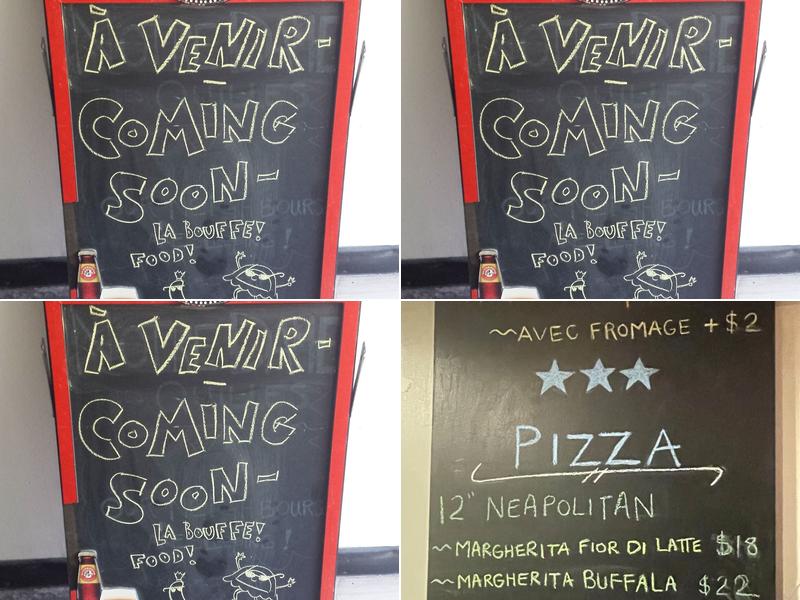 À VENIR-
COMING
SOON-
LA BOUFFE!
FOOD!
À VENIR-
COMING
SOON-
LA BOUFFE!
FOOD!
À VENIR-
COMING
SOON-
LA BOUFFE!
FOOD!
~AVEC FROMAGE +$2
PIZZA
12" NEAPOLITAN
~MARGHERITA FIOR DI LATTE $18
~MARGHERITA BUFFALA $22